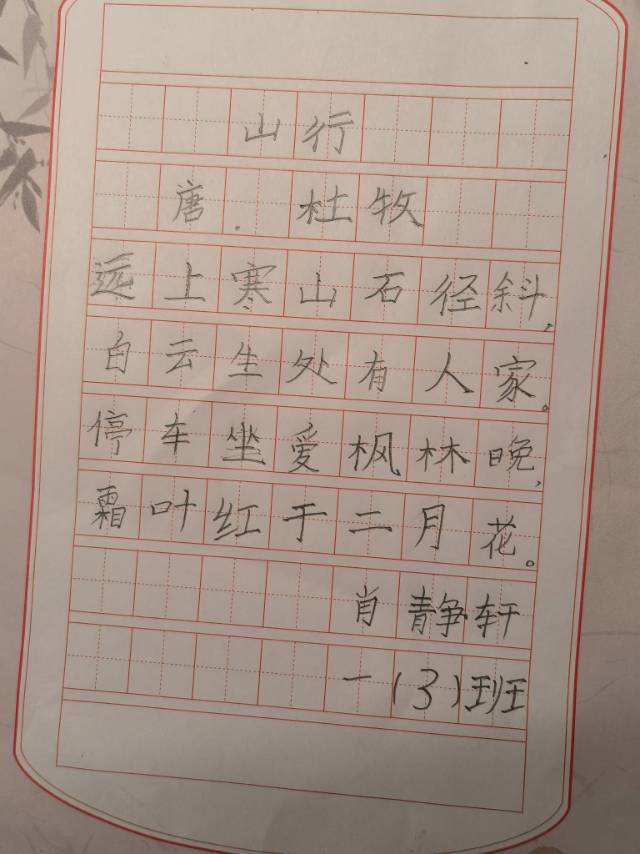 山行
唐.杜牧
远上寒山石径斜,
白云生处有人家。
停车坐爱枫林晚,
霜叶红于二月花。
肖静轩
一(3)班